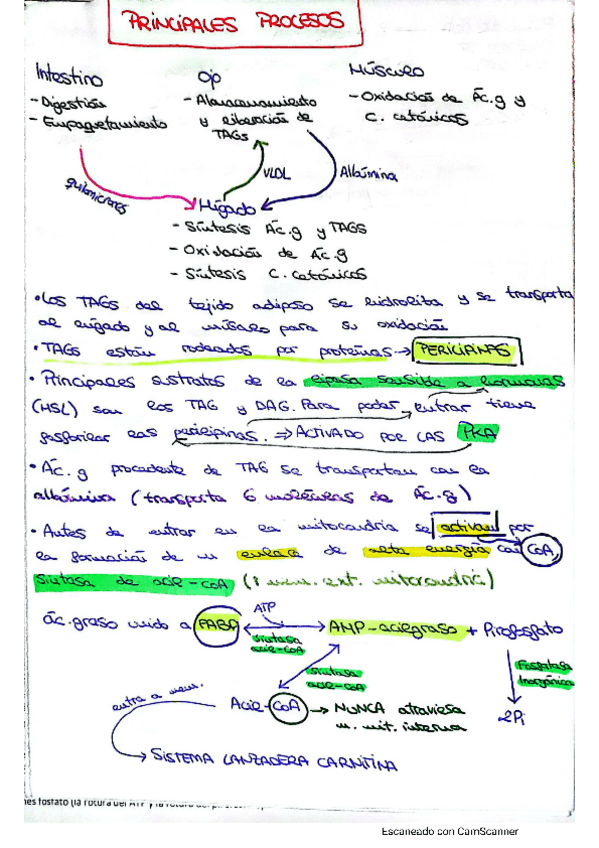 PRINCIPALES PROCESOS
Intestino
- Digestión
- Empaquetamiento
- Almacenamiento
y liberación de
TAGs
Músculo
- Oxidación de Ác. g y
C. cetónicos
quilomicrones
VLDL
Albúmina
Hígado
- Síntesis Ác. g y TAGS
- Oxidación de Ác. g
- Síntesis C. cetónicos
• Los TAGs del tejido adiposo se hidroliza y se transporta
al hígado y al músculo para su oxidación
• TAGs están rodeados por proteínas → PERILIPINAS
• Principales sustratos de la lipasa sensible a hormonas
(HSL) son los TAG y DAG. Para poder entrar tiene
fosforilar las perilipinas. ⇒ ACTIVADO POR LAS PKA
• Ác. g procedente de TAG se transportan con la
albúmina (transporta 6 moléculas de Ác. g)
• Antes de entrar en la mitocondria se activan por
la formación de un enlace de alta energía con CoA,
sintasa de acil-CoA (1 mem. ext. mitocondria)
ác. graso unido a FABP
ATP
sintasa
acil-CoA
AMP-acilgraso + Pirofosfato
sintasa
acil-CoA
Fosfatasa
Inorgánica
2Pi
entra a mem.
Acil-CoA → NUNCA atraviesa
m. mit. interna
→ SISTEMA LANZADERA CARNITINA
Escaneado con CamScanner